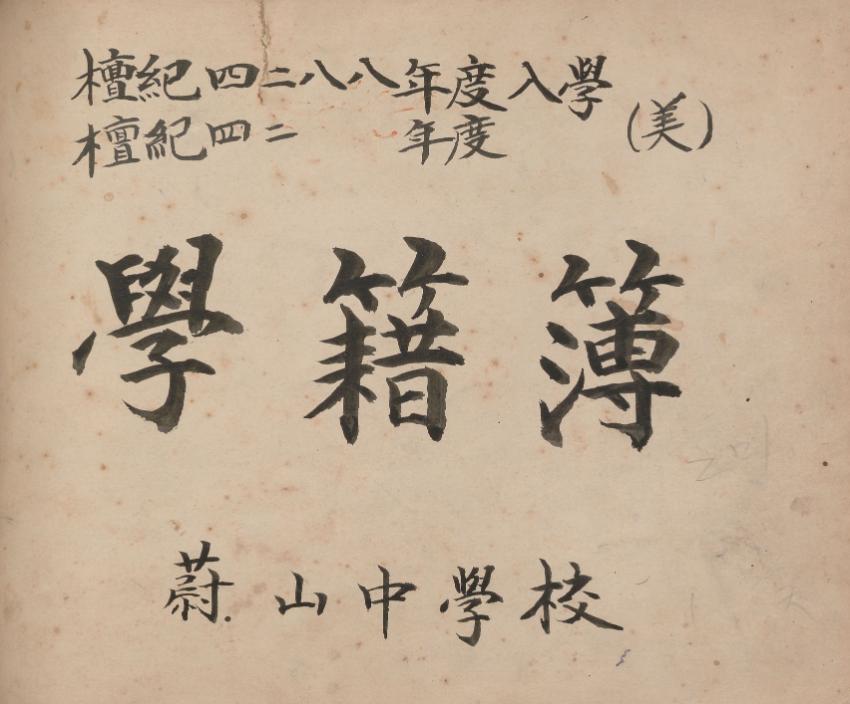 檀紀四二八八年度入學
檀紀四二 年度
(美)
學籍簿
蔚山中學校